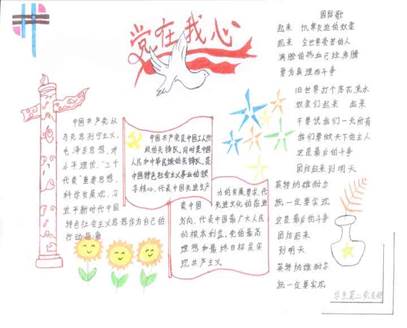 党在我心
中国共产党以
马克思列宁主义、
毛泽东思想、邓
小平理论、"三个
代表"重要思想、
科学发展观、习
近平新时代中国
特色社会主义思想作为自己的
行动指南
中国共产党是中国工人阶
级的先锋队，同时是中国
人民和中华民族的先锋队，是
中国特色社会主义事业的领
导核心，代表中国先进生产
力的发展要求，代
表中国先进文化的前进
方向，代表中国最广大人民
的根本利益。党的最高
理想和最终目标是实
现共产主义。
国际歌
起来 饥寒交迫的奴隶
起来 全世界受苦的人
满腔的热血已经沸腾
要为真理而斗争
旧世界打个落花流水
奴隶们起来 起来
不要说我们一无所有
我们要做天下的主人
这是最后的斗争
团结起来到明天
英特纳雄耐尔
就一定要实现
这是最后的斗争
团结起来
到明天
英特纳雄耐尔
就一定要实现